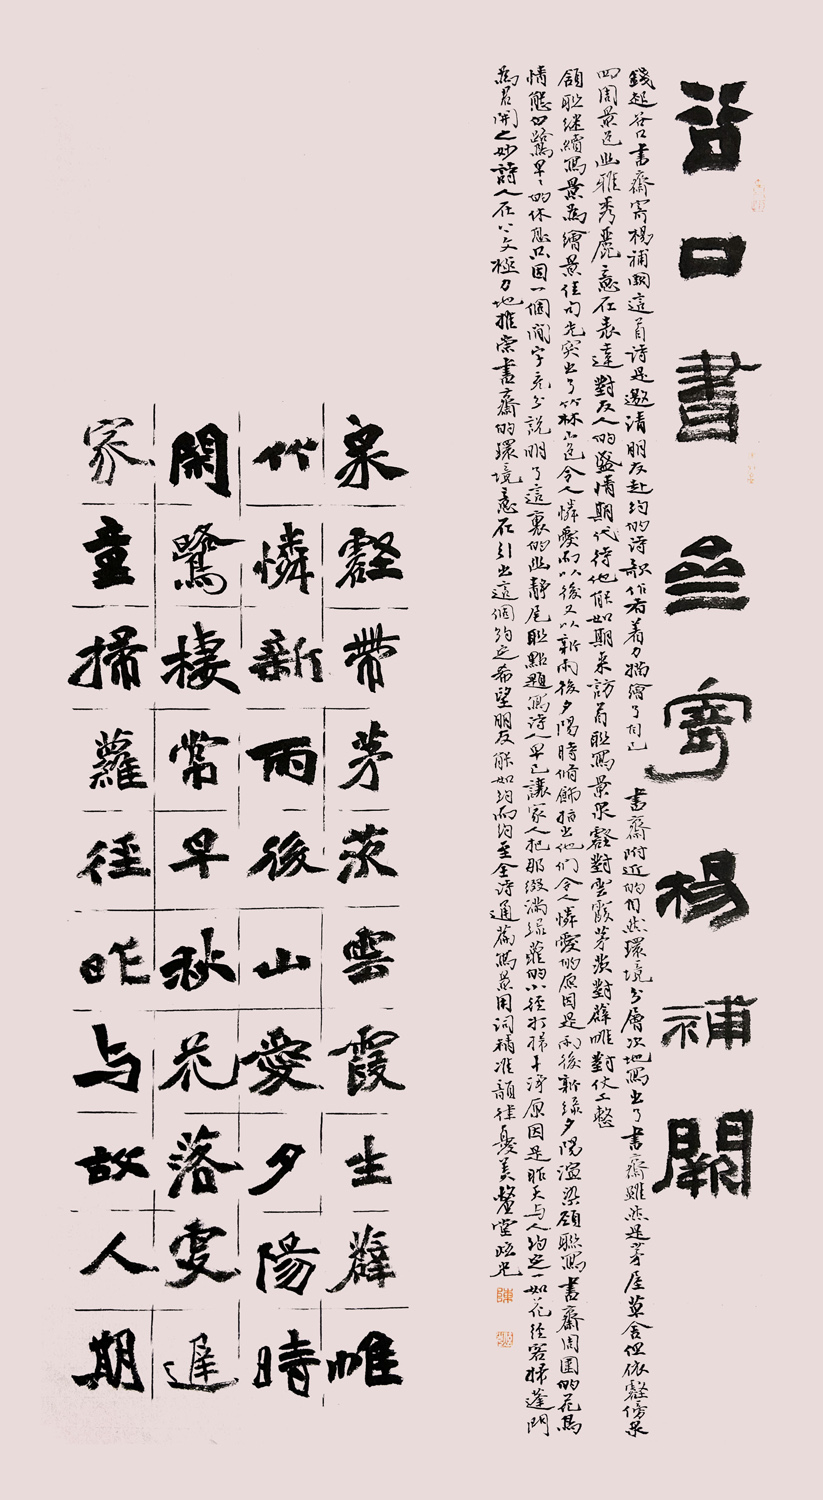 谷口書亝寄楊補闕
錢起谷口書齋寄楊補闕這首詩是邀請朋友赴約的詩歌作者着力描繪了自己 書齋附近的自然環境分層次地寫出了書齋雖然是茅屋草舍但依壑傍泉
四周景色幽雅秀麗意在表達對友人的盛情期代待他能如期來訪首聯寫景泉壑對雲霞茅茨對薜帷對仗工整
頷聯继續寫景爲繪景佳句先突出了竹林山色令人憐愛而以後又以新雨後夕陽時脩飾指出他們令人憐愛的原因是雨後新綠夕陽渲染頸聯寫書齋周围的花鳥
情態如鷺早早的休息只因一個閒字充分説明了這裏的幽静尾聯點題寫詩人早已讓家人把那缀滿绿蘿的小徑打掃干净原因是昨天与人约定一如花徑客掃蓬門
爲君開之妙詩人在公文極力地推崇書齋的環境意在引出這個約定希望朋友能如约而约至全诗通篇寫景用詞精准韻律憂美堂晓光
泉壑帶茅茨雲霞生薜帷
竹憐新雨後山愛夕陽時
閑鷺棲常早秋花落更遲
家童掃蘿徑昨与故人期